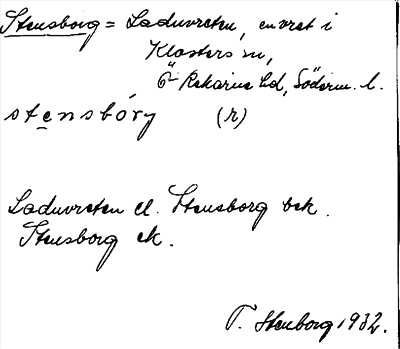 Stensborg = Laduvreten, en vret i
Klosters sn,
Ö-Rekarne hd, Söderm. l.
stensbóry (r)
Laduvreten el. Stensborg bek.
Stensborg ek.
T. Stenborg 1932.